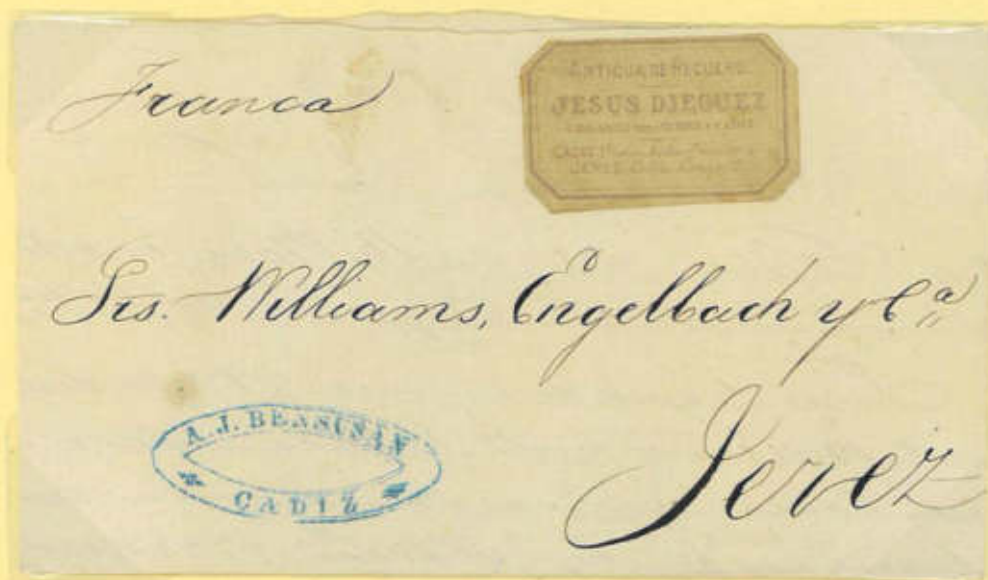 Franca
ANTIGUA DE RECULEZ
JESUS DIEGUEZ
CADIZ
JEREZ
Srs. Williams, Engelbach y Cª
A. J. BENSUSAN
CADIZ
Jerez